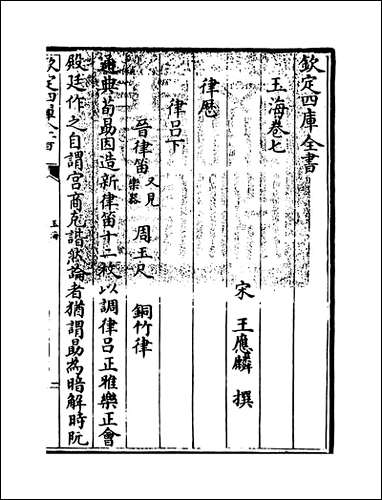 欽定四庫全書
玉海卷七
宋 王應麟 撰
律歷
律呂下
晉律笛又見樂器 周玉尺 銅竹律
通典荀勗因造新律笛十二枚以調律呂正雅樂正會
殿廷作之自謂宮商克諧然論者猶謂勗為暗解時阮
欽定四庫全書
玉海